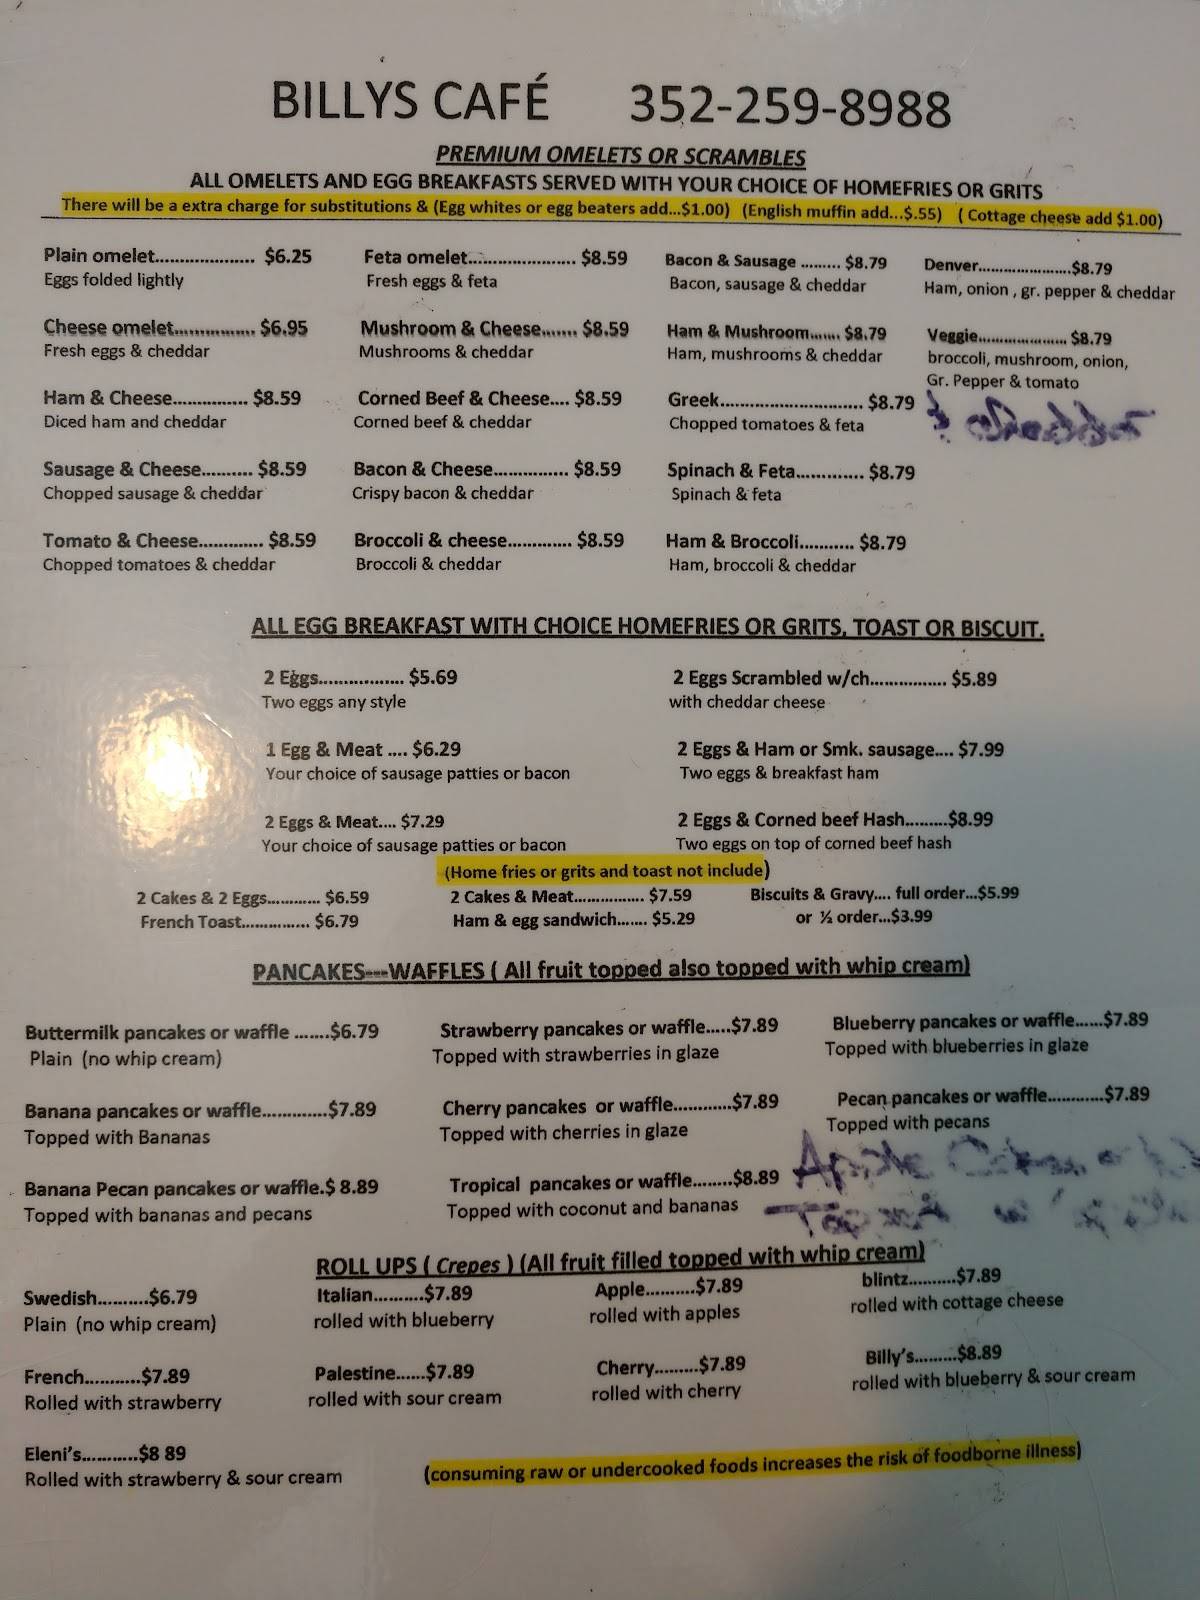 BILLYS CAFÉ 352-259-8988
PREMIUM OMELETS OR SCRAMBLES
ALL OMELETS AND EGG BREAKFASTS SERVED WITH YOUR CHOICE OF HOMEFRIES OR GRITS
There will be a extra charge for substitutions & (Egg whites or egg beaters add...$1.00) (English muffin add...$.55) ( Cottage cheese add $1.00)
Plain omelet.................... $6.25
Eggs folded lightly
Cheese omelet................ $6.95
Fresh eggs & cheddar
Ham & Cheese............... $8.59
Diced ham and cheddar
Sausage & Cheese.......... $8.59
Chopped sausage & cheddar
Tomato & Cheese............. $8.59
Chopped tomatoes & cheddar
Feta omelet...................... $8.59
Fresh eggs & feta
Mushroom & Cheese....... $8.59
Mushrooms & cheddar
Corned Beef & Cheese.... $8.59
Corned beef & cheddar
Bacon & Cheese............... $8.59
Crispy bacon & cheddar
Broccoli & cheese............. $8.59
Broccoli & cheddar
Bacon & Sausage ......... $8.79
Bacon, sausage & cheddar
Ham & Mushroom....... $8.79
Ham, mushrooms & cheddar
Greek............................. $8.79
Chopped tomatoes & feta
Spinach & Feta............. $8.79
Spinach & feta
Ham & Broccoli........... $8.79
Ham, broccoli & cheddar
Denver.......................$8.79
Ham, onion , gr. pepper & cheddar
Veggie...................... $8.79
broccoli, mushroom, onion,
Gr. Pepper & tomato
ALL EGG BREAKFAST WITH CHOICE HOMEFRIES OR GRITS, TOAST OR BISCUIT.
2 Eggs.................. $5.69
Two eggs any style
2 Eggs Scrambled w/ch................ $5.89
with cheddar cheese
1 Egg & Meat .... $6.29
Your choice of sausage patties or bacon
2 Eggs & Ham or Smk. sausage.... $7.99
Two eggs & breakfast ham
2 Eggs & Meat.... $7.29
Your choice of sausage patties or bacon
2 Eggs & Corned beef Hash.........$8.99
Two eggs on top of corned beef hash
(Home fries or grits and toast not include)
2 Cakes & 2 Eggs............ $6.59
2 Cakes & Meat................ $7.59
Biscuits & Gravy.... full order...$5.99
French Toast................ $6.79
Ham & egg sandwich....... $5.29
or ½ order...$3.99
PANCAKES---WAFFLES ( All fruit topped also topped with whip cream)
Buttermilk pancakes or waffle .......$6.79
Plain (no whip cream)
Strawberry pancakes or waffle.....$7.89
Topped with strawberries in glaze
Blueberry pancakes or waffle......$7.89
Topped with blueberries in glaze
Banana pancakes or waffle.............$7.89
Topped with Bananas
Cherry pancakes or waffle............$7.89
Topped with cherries in glaze
Pecan pancakes or waffle............$7.89
Topped with pecans
Banana Pecan pancakes or waffle.$ 8.89
Topped with bananas and pecans
Tropical pancakes or waffle........$8.89
Topped with coconut and bananas
Apple
ROLL UPS ( Crepes ) (All fruit filled topped with whip cream)
Swedish..........$6.79
Plain (no whip cream)
Italian..........$7.89
rolled with blueberry
Apple..........$7.89
rolled with apples
blintz..........$7.89
rolled with cottage cheese
French...........$7.89
Rolled with strawberry
Palestine......$7.89
rolled with sour cream
Cherry.........$7.89
rolled with cherry
Billy's.........$8.89
rolled with blueberry & sour cream
Eleni's...........$8 89
Rolled with strawberry & sour cream
(consuming raw or undercooked foods increases the risk of foodborne illness)